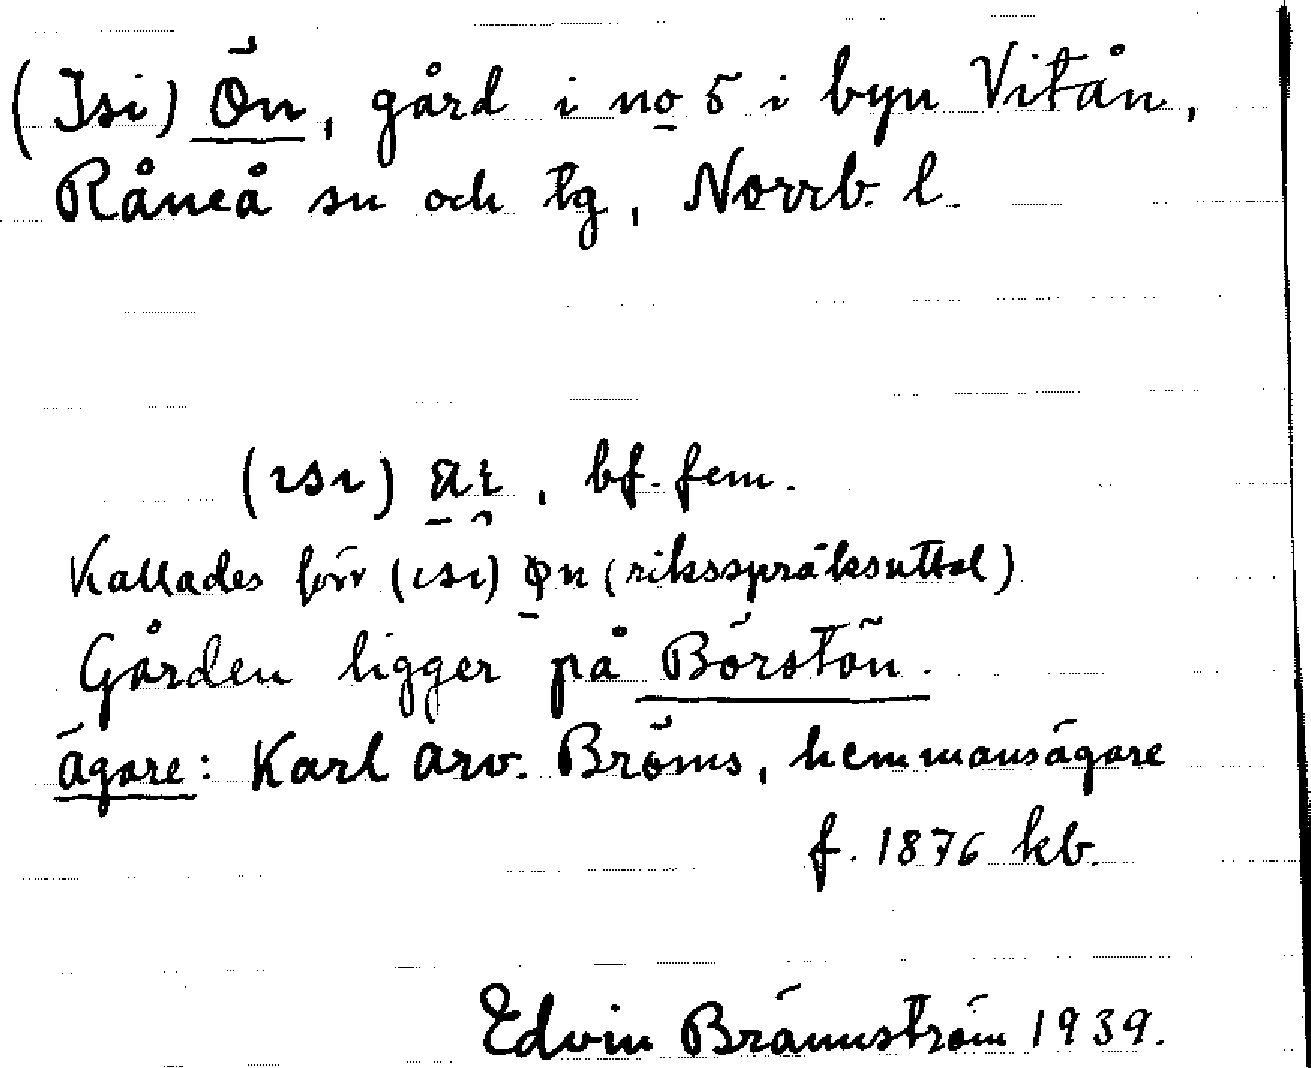 (Isi) Ön, gård i no 5 i byn Vitån,
Råneå sn och tg, Norrb. l.
(ısı) , bf. fem.
Kallades förr (ısı) øn (riksspråksuttal)
Gården ligger på Börstön.
Ägare: Karl Arv. Bröms, hemmansägare
f. 1876 kb.
Edvin Brännström 1939.